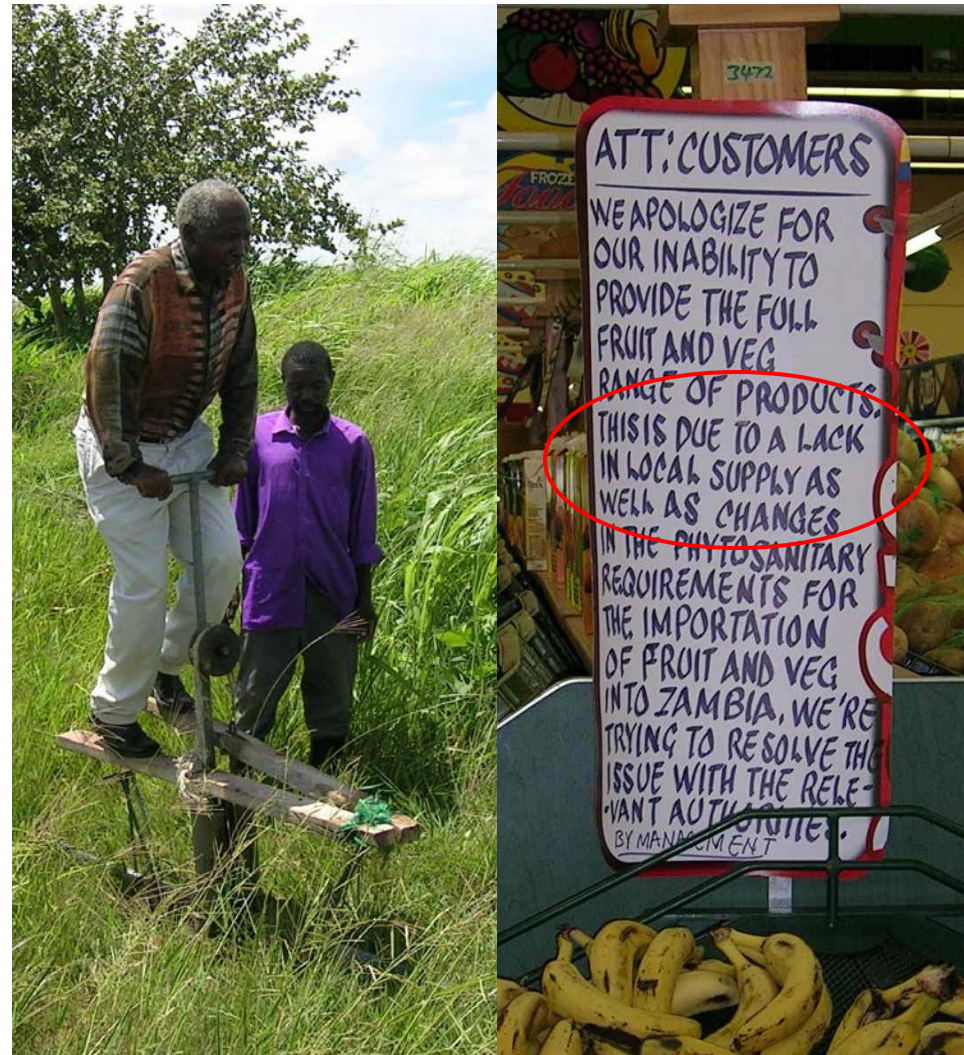 3472
ATT: CUSTOMERS
WE APOLOGIZE FOR
OUR INABILITY TO
PROVIDE THE FULL
FRUIT AND VEG
RANGE OF PRODUCTS.
THIS IS DUE TO A LACK
IN LOCAL SUPPLY AS
WELL AS CHANGES
IN THE PHYTOSANITARY
REQUIREMENTS FOR
THE IMPORTATION
OF FRUIT AND VEG
INTO ZAMBIA. WE'RE
TRYING TO RESOLVE THE
ISSUE WITH THE RELE-
-VANT AUTHORITIES.
BY MANAGEMENT
FROZE